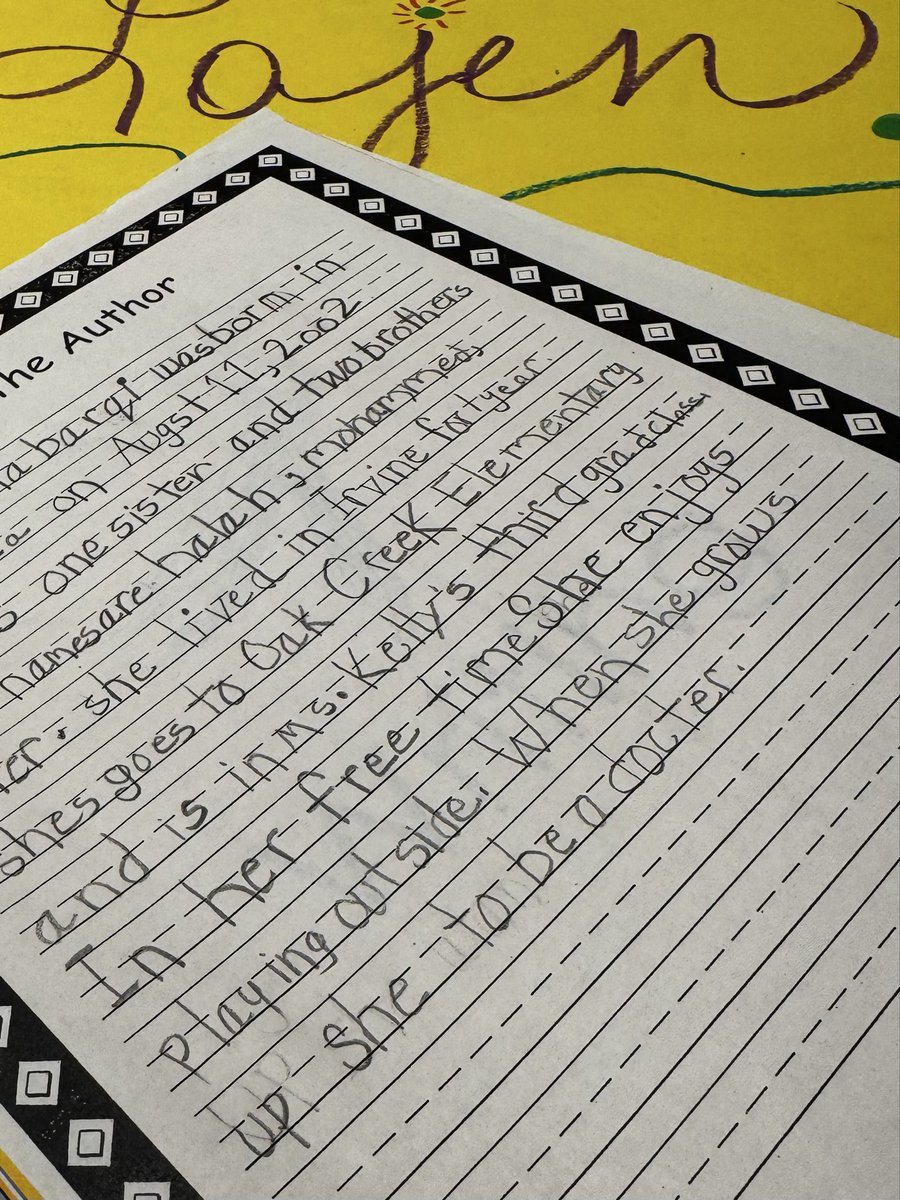 Lojen
The Author
abarqi wasborm in
on Augst 11, 2002
one sister and two brothers
namesare halah, mohammed,
she lived in Irvine for 1 year.
shes goes to Oak Creek Elementary
and is in Ms. Kelly's third grad class.
In her free time Shae enjoys
playing out side. When she grows
up she to be a docter.